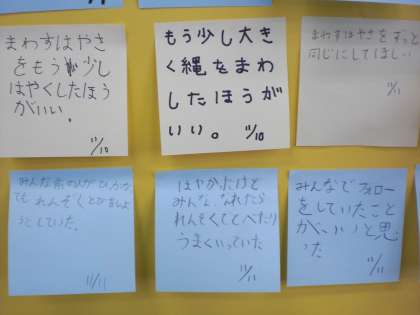 まわすはやさ
をもう少し
はやくしたほう
がいい。
11/10
もう少し大き
く縄をまわ
したほうが
いい。 11/10
まわすはやさをずっと
同じにしてほしい
11/11
みんな
でも れんぞくとび
うとしていた。
11/11
はやかったけど
みんな、なれたら
れんぞくでとべたり
うまくいっていた
11/11
みんなでフォロー
をしていたこと
がいいと思
った
11/11